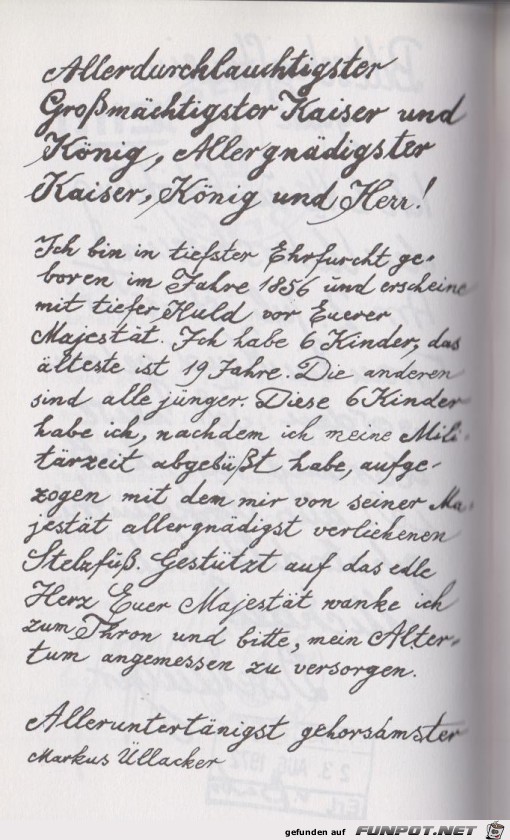 Allerdurchlauchtigster
Großmächtigster Kaiser und
König, Allergnädigster
Kaiser, König und Herr!
Ich bin in tiefster Ehrfurcht ge-
boren im Jahre 1856 und erscheine
mit tiefer Huld vor Euerer
Majestät. Ich habe 6 Kinder, das
älteste ist 19 Jahre. Die anderen
sind alle jünger. Diese 6 Kinder
habe ich, nachdem ich meine Mili-
tärzeit abgebüßt habe, aufge-
zogen mit dem mir von seiner Ma-
jestät allergnädigst verliehenen
Stelzfuß. Gestützt auf das edle
Herz Euer Majestät wanke ich
zum Thron und bitte, mein Alter-
tum angemessen zu versorgen.
Alleruntertänigst gehorsámster
Markus Üllacker
23. AUG. 1972
gefunden auf FUNPOT.NET